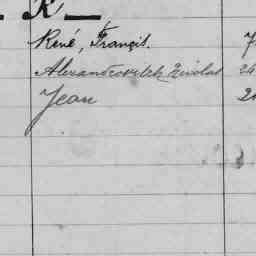 K
René, François. 7
Alexandrovitch Nicolas 24
Jean 2